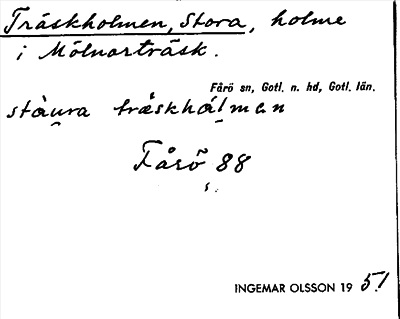 Träskholmen, Stora, holme
i Mölnorträsk.
Fårö sn, Gotl. n. hd, Gotl. län.
stàura träskhålman
Fårö 88
s:
INGEMAR OLSSON 19 51